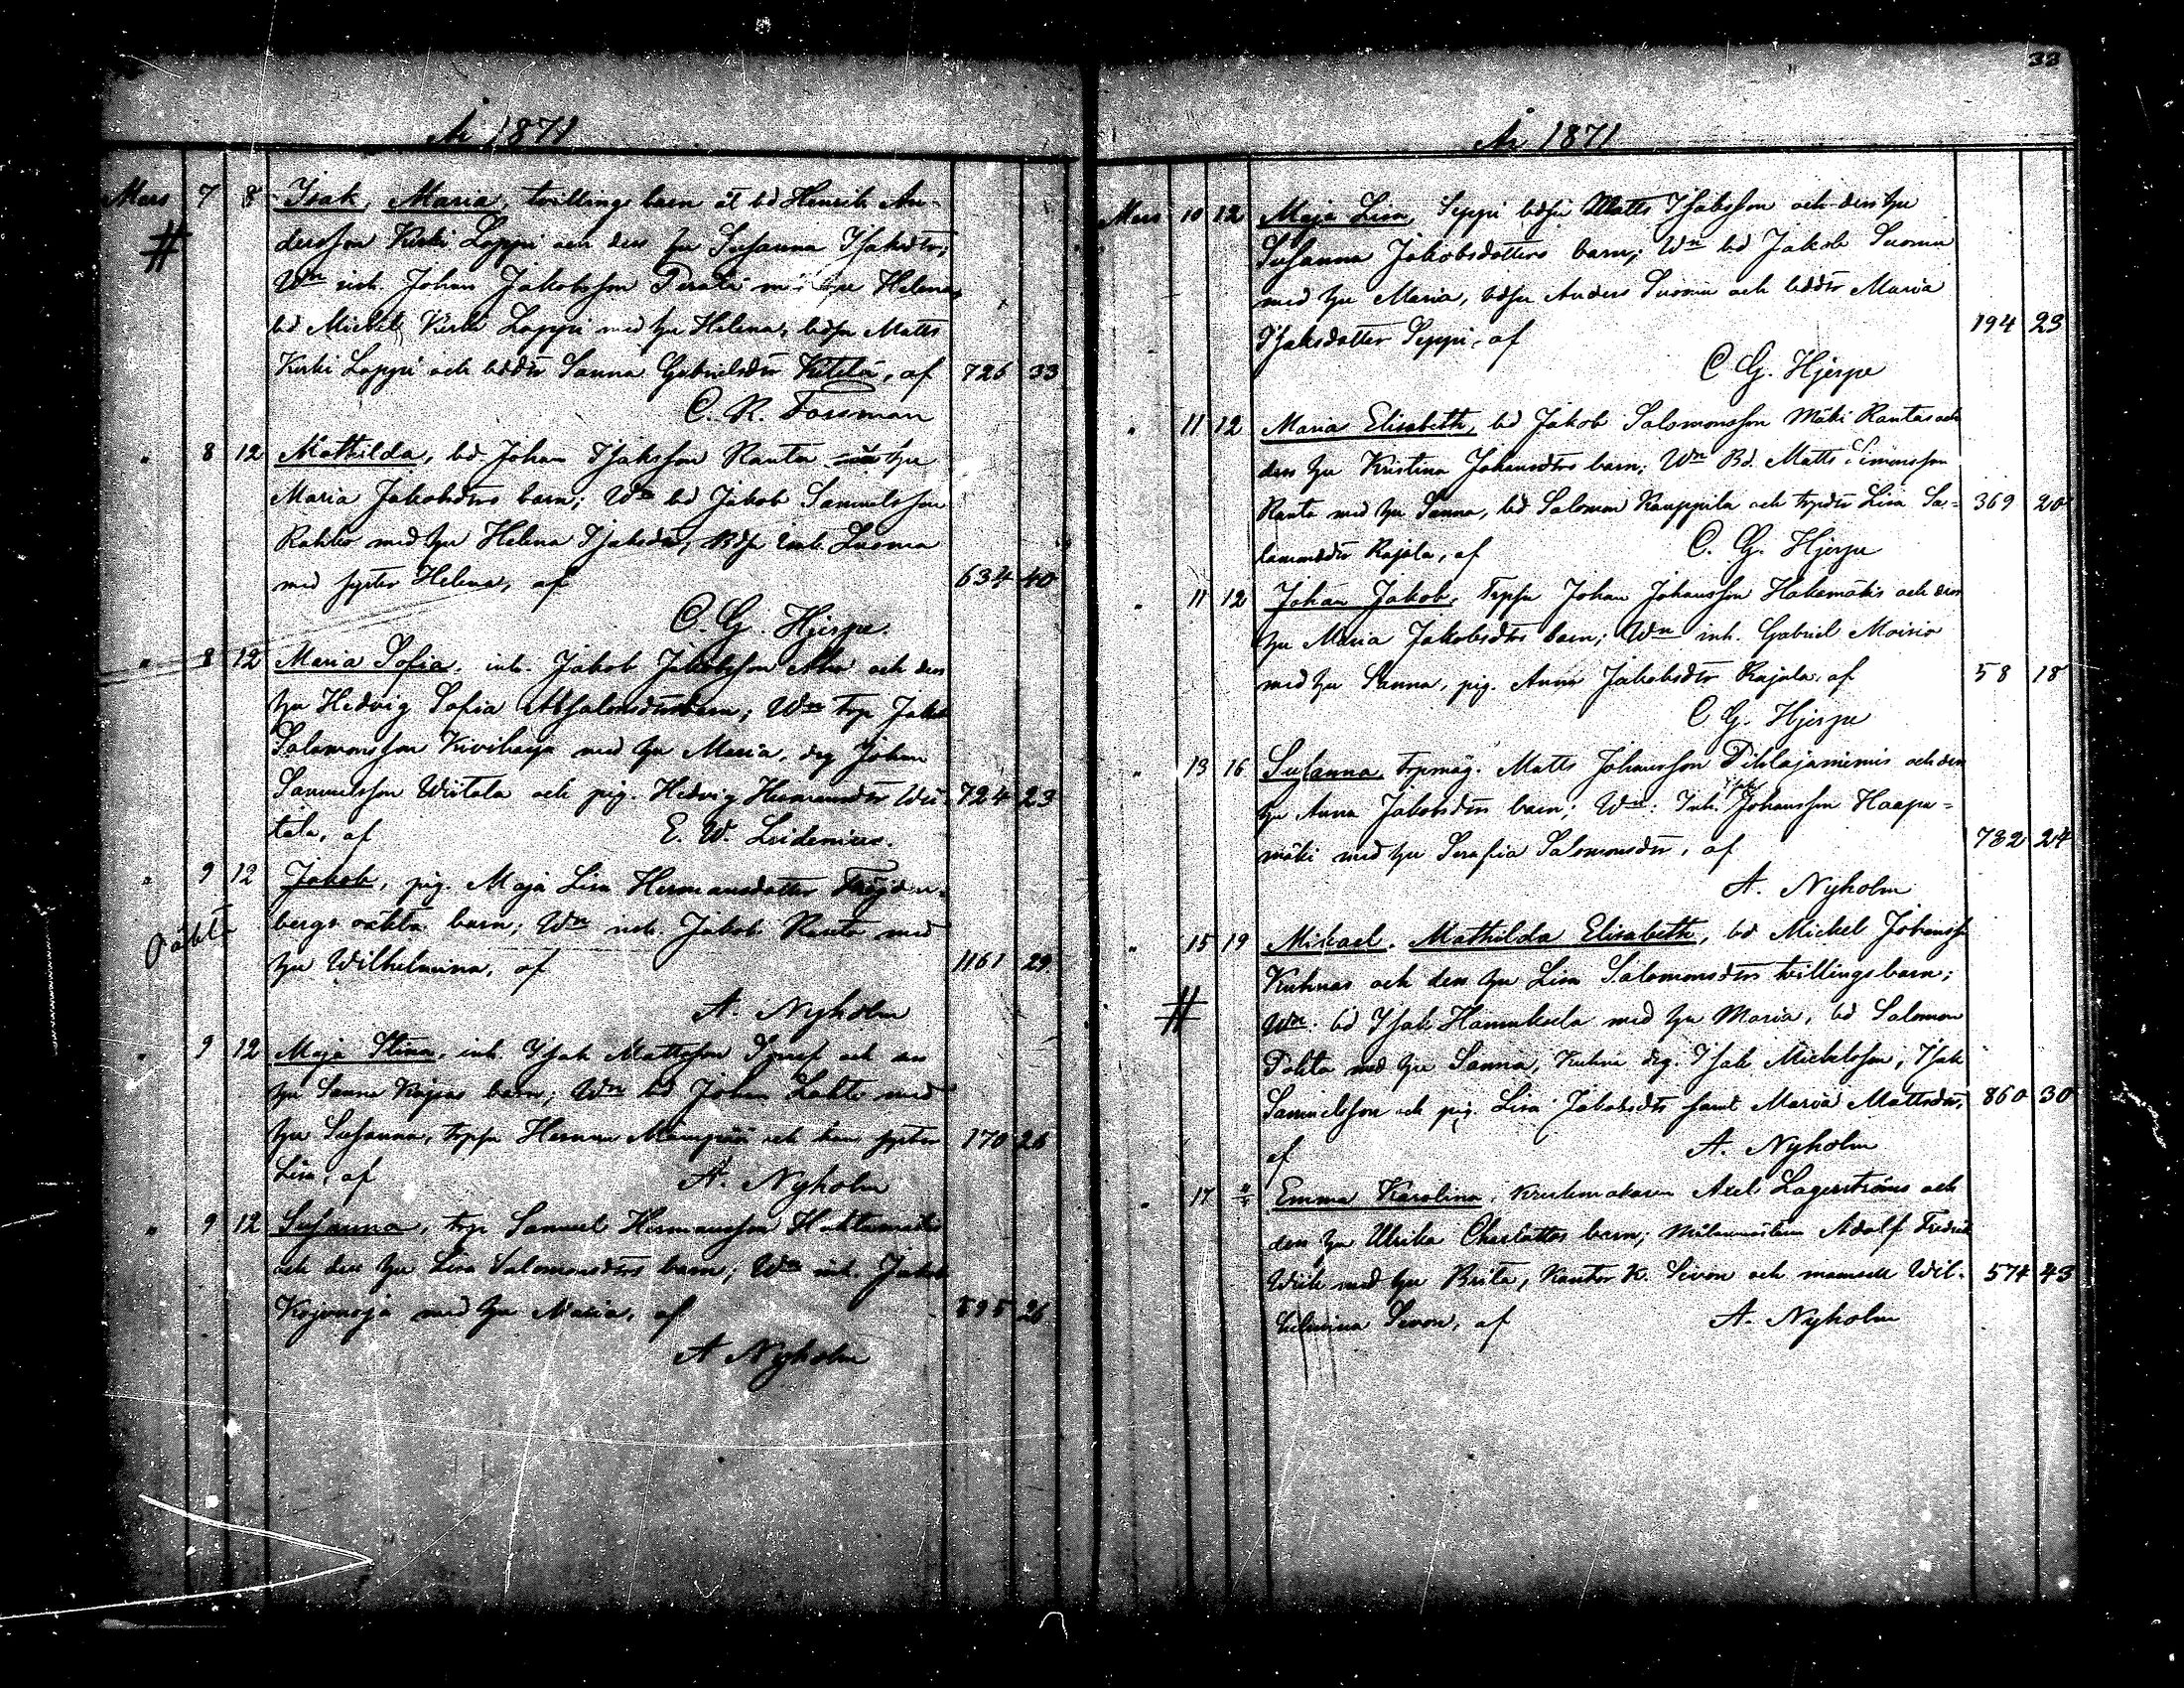 33
År 1871
Mars 7 8 Isak, Maria, tvillinge barn åt bd Henrik An-
dersson Kirki Loppi och dess hu Susanna Isaksdtr;
Wn inh. Johan Jakobsson Perälä hu Helena,
bd Mickel Kirki Loppi med hu Helena, bdsn Matts
Kirki Loppi och bddtr Sanna Gabrielsdtr Kitilä, af 726 33
C. R. Forsman
" 8 12 Mathilda, bd Johan Isaksson Ranta hu
Maria Jakobsdtrs barn; Wn bd Jakob Samuelsson
med hu Helena Isaksdtr, Bdsn Luoma
med syster Helena, af 634 40
C. G. Hjerpe.
" 8 12 Maria Sofia, inh. Jakob Jakobsson och dess
hu Hedvig Sofia Absalonsdtrs barn; Wn trp Jakob
Salomonsson Kiviharja med hu Maria, dg Johan
Samuelsson Wiitala och pig. Hedvig Hermansdtr Wii- 724 23
tala, af E. W. Lindenius.
" 9 12 Jakob, pig. Maja Lisa Hermansdotter Fröjden-
Oäkta bergs oäkta barn; Wn inh. Jakob Ranta med
hu Wilhelmina, af 1161 29
A. Nyholm
" 9 12 Maja Stina, inh Isak Mattsson och
hu Sanna barn; Wn bd Johan Lahti med
hu Susanna, trpsn Herman och syster 170 26
Lisa, af A. Nyholm
" 9 12 Susanna, trp Samuel Hermansson
och dess hu Lisa Salomonsdtrs barn; Wn inh. Jakob
med hu Maria, af 595 26
A Nyholm
År 1871
Mars 10 12 Maja Lisa, Seppi bdsn Matts Isaksson och dess hu
Susanna Jakobsdotters barn; Wn bd Jakob Suoma
med hu Maria, bdsn Anders Suoma och bddtr Maria
Isaksdotter Seppi, af 194 23
C G. Hjerpe
" 11 12 Maria Elisabeth, bd Jakob Salomonsson Mäki Rantas och
dess hu Kristina Johansdtrs barn; Wn Bd. Matts Simonsson
Ranta med hu Sanna, bd Salomon Kauppila och trpdtr Lisa Sa- 369 20
lomonsdtr Rajala, af C. G. Hjerpe
" 11 12 Johan Jakob, Trpsn Johan Johansson Hakomäkis och dess
hu Maria Jakobsdtrs barn; Wn inh. Gabriel Moisio
med hu Sanna, pig. Anna Jakobsdtr Rajala, af 58 18
C G. Hjerpe
" 13 16 Susanna, trpmåg. Matts Johansson Pihlajaniemis och dess
hu Anna Jakobsdtrs barn; Wn: Inh. Johansson Haapa-
mäki med hu Serafia Salomonsdtr, af 782 24
A. Nyholm
" 15 19 Mikael, Mathilda Elisabeth, bd Mickel Johansson
Kuhnas och dess hu Lisa Salomonsdtrs tvillingsbarn;
Wn. bd Isak Hamuksela med hu Maria, bd Salomon
Pokta med hu Sanna, Kuhna dg. Isak Mickelsson, Isak
Samuelsson och pig. Lisa Jakobsdtr samt Maria Mattsdtr, 860 30
af A. Nyholm
" 17 Emma Karolina, Krukmakaren Axel Lagerströms och
dess hu Ulrika Charlottas barn; Målaremästaren Adolf Fredrik
Wiik med hu Brita, Kantor K. Sevon och mamsell Wil- 574 43
helmina Sevon, af A. Nyholm